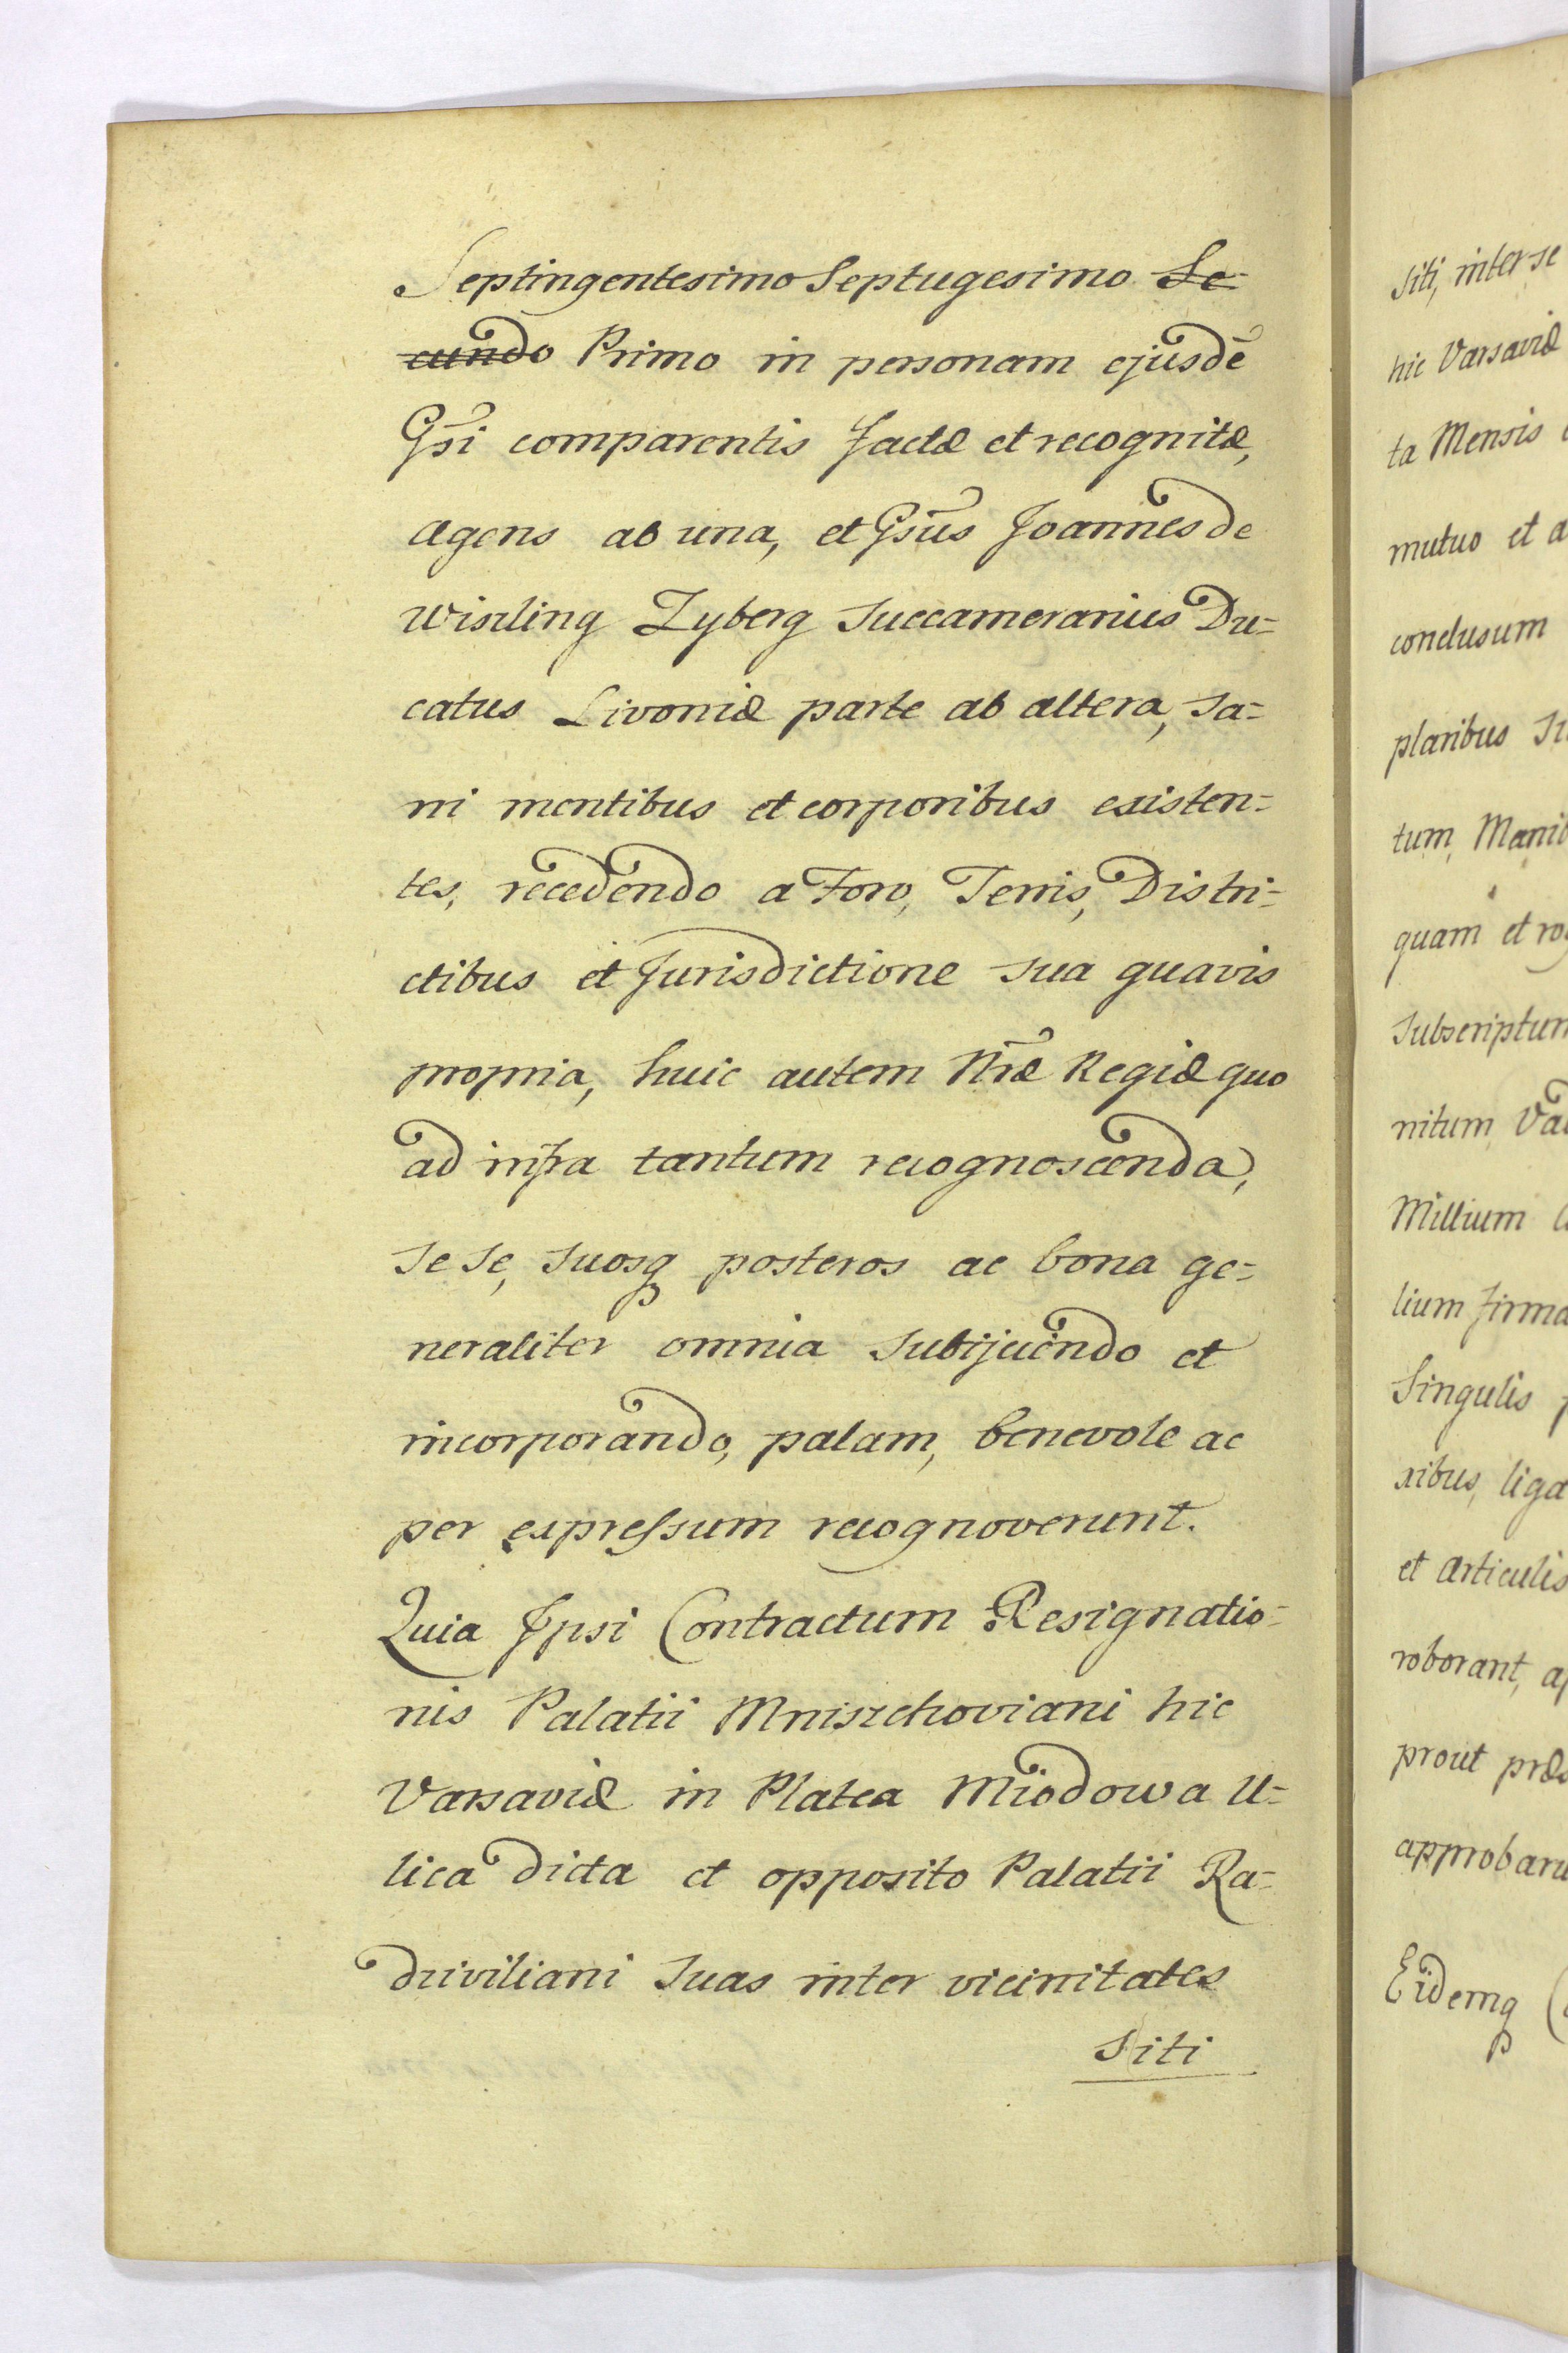 Septingentesimo Septugesimo Se-
cundo Primo in personam ejusdē
Gsi comparentis factæ et recognitæ,
agens ab una, et Gsūs Joannes de
Wiszling Zyberg Succamerarius Du=
catus Livoniæ parte ab altera, sa=
ni mentibus et corporibus existen=
tes, recedendo a Foro, Terris, Distri=
ctibus et Jurisdictione sua quavis
propria, huic autem Nræ Regiæ quo
ad infra tantum recognoscenda,
se se, suosq posteros ac bona ge=
neraliter omnia subijciendo et
incorporando, palam, benevole ac
per expressum recognoverunt.
Quia Ipsi Contractum Resignatio=
nis Palatii Mniszchoviani hic
Varsaviæ in Platea Miodowa U=
lica dicta et opposito Palatii Ra=
dziviliani suas inter vicinitates
Siti
siti, inter se
hic Varsaviæ
ta Mensis
mutuo et
conclusum
plaribus
tum,
quam et
subscriptum
nitum,
Millium
lium firma
Singulis
xibus, liga
et articulis
roborant,
prout
approbaru
Eidemq